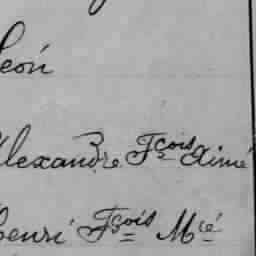 Léon
Alexandre Fçois Aimé
Henri Fçois Mié